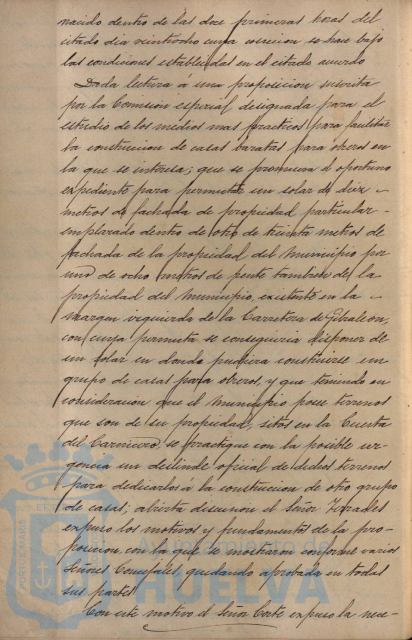 nacido dentro de las doce primeras horas del
citado dia veintiocho cuya coaccion se hace bajo
las condiciones establecidas en el citado acuerdo
Dada lectura á una proposicion suscrita
por la Comisión especial designada para el
estudio de los medios mas practicos para facilitar
la construccion de casas baratas para obreros en
la que se interesa; que se promueva el oportuno
expediente para permutar un solar de diez
metros de fachada de propiedad particular
emplazado dentro de otro de treinta metros de
fachada de la propiedad del Municipio por
uno de ocho metros de frente tambien de la
propiedad del Municipio, existente en la
margen izquierda de la Carretera de Gibraleon,
con cuya permuta se conseguiria disponer de
un solar en donde pudiera construirse un
grupo de casas para obreros, y que teniendo en
consideración que el Municipio posee terrenos
que son de su propiedad, sitos en la Cuesta
del Carnicero, se practique con la posible ur-
gencia un deslinde oficial de dichos terrenos
para dedicarlos á la construccion de otro grupo
de casas; abierta discusion el Señor
expuso los motivos y fundamentos de la pro-
posicion, con la que se mostraron conforme varios
Señores Concejales, quedando aprobada en todas
sus partes.
Con este motivo el Señor Corte expuso la nece-
PORTUS MARIS
Ayuntamiento de
HUELVA